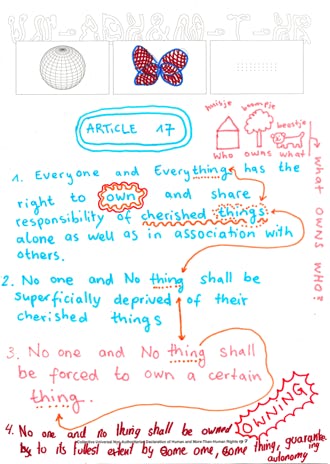 ARTICLE 17
huisje boompje beestje
WHO OWNS WHAT
WHAT OWNS WHO?
1. Everyone and Everything has the
right to own and share
responsibility of cherished things
alone as well as in association with
others.
2. No one and No thing shall be
superficially deprived of their
cherished things
3. No one and No thing shall
be forced to own a certain
thing..
OWNING
4. No one and no thing shall be owned
Collective Universal Non-Authoritarian Declaration of Human and More-Than-Human Rights
by to its fullest extent by some one, some thing, guarantee
ing autonomy